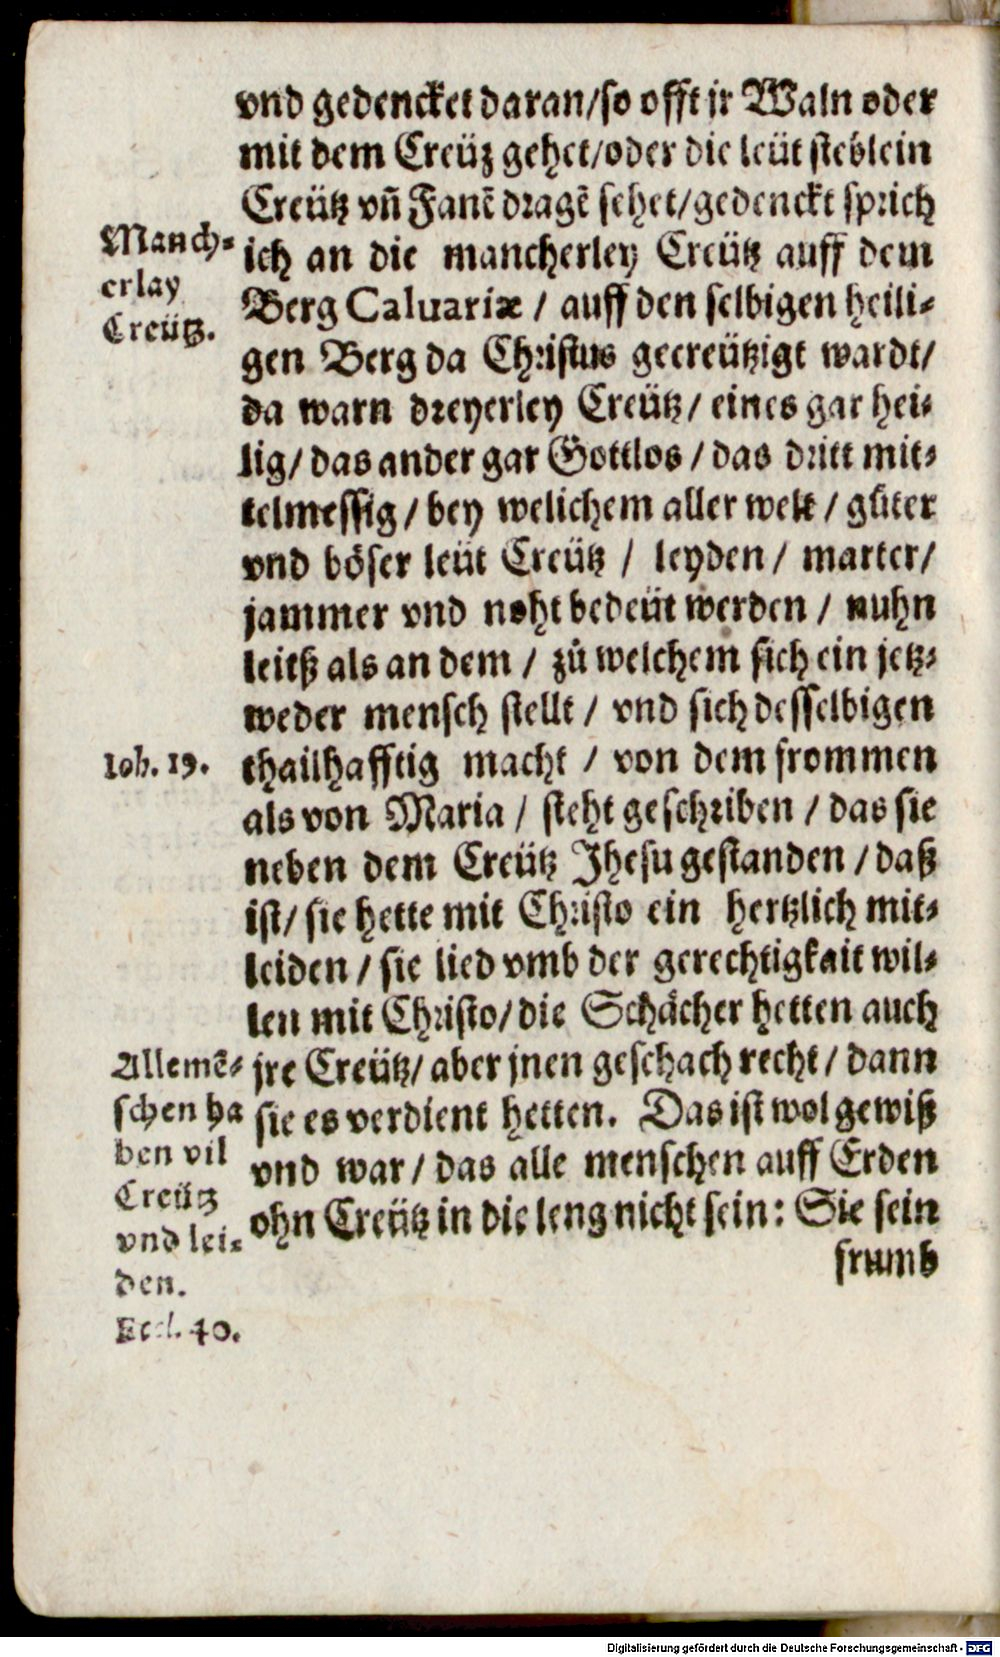 vnd gedencket daran/so offt jr Waln oder
mit dem Creüz gehet/oder die leüt steblein
Creütz vñ Fanẽ dragẽ sehet/gedenckt sprich
ich an die mancherley Creütz auff dem
Berg Caluariæ / auff den selbigen heili-
gen Berg da Christus gecreützigt wardt/
da warn dreyerley Creütz/ eines gar hei-
lig/ das ander gar Gottlos / das dritt mit-
telmessig / bey welichem aller welt / güter
vnd böser leüt Creütz / leyden / marter/
jammer vnd noht bedeüt werden / nuhn
leitß als an dem / zů welchem sich ein jetz-
weder mensch stellt / vnd sich desselbigen
thailhafftig macht / von dem frommen
als von Maria / steht geschriben / das sie
neben dem Creütz Jhesu gestanden / daß
ist/ sie hette mit Christo ein hertzlich mit-
leiden / sie lied vmb der gerechtigkait wil-
len mit Christo/ die Schächer hetten auch
jre Creütz/ aber jnen geschach recht / dann
sie es verdient hetten. Das ist wol gewiß
vnd war / das alle menschen auff Erden
ohn Creütz in die leng nicht sein: Sie sein
frumb
Manch-
erlay
Creütz.
Ioh. 19.
Allemẽ-
schen ha
ben vil
Creütz
vnd lei-
den.
Eccl. 40.
Digitalisierung gefördert durch die Deutsche Forschungsgemeinschaft - DFG